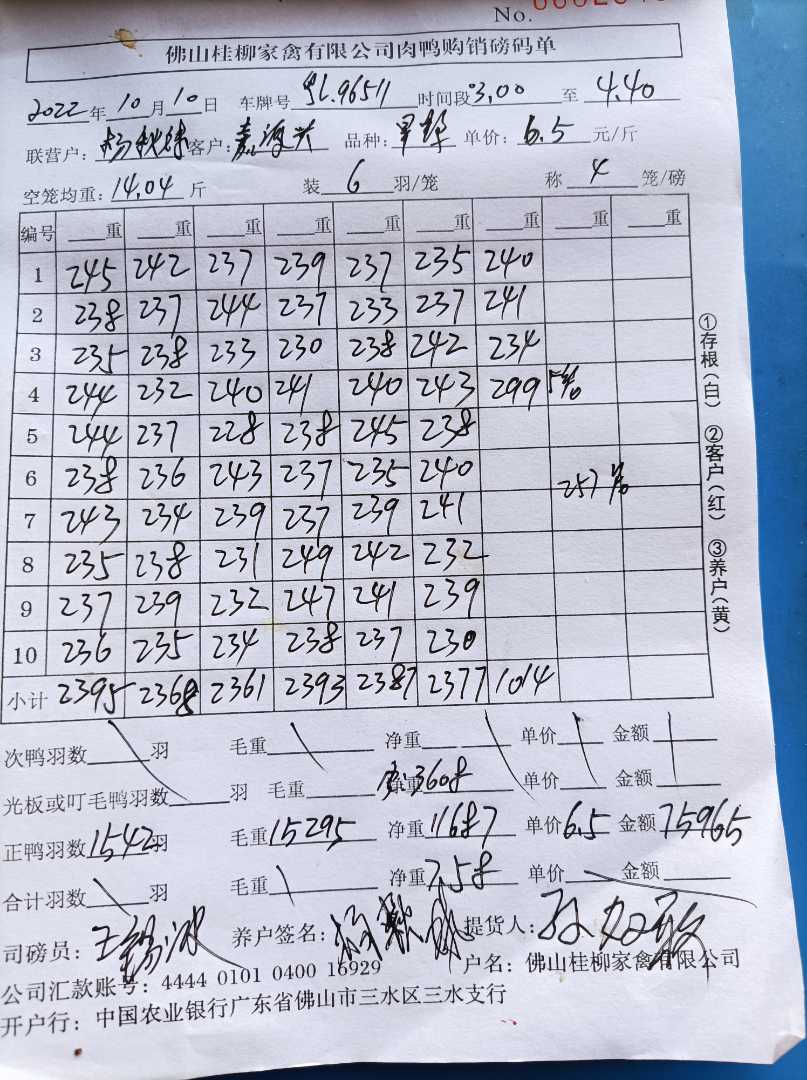 No.
佛山桂柳家禽有限公司肉鸭购销磅码单
2022年10月10日 车牌号 96511 时间段 3.00 至 4.40
联营户: 客户: 嘉源兴 品种: 单价: 6.5 元/斤
空笼均重: 14.04 斤 装 6 羽/笼 称 4 笼/磅
编号 重 重 重 重 重 重 重 重 重
1 245 242 237 239 237 235 240
2 238 237 244 237 233 237 241
3 235 238 233 230 238 242 234
4 244 232 240 241 240 243 299 5节
5 244 237 228 238 245 238
6 238 236 243 237 235 240 257节
7 243 234 239 237 239 241
8 235 238 231 249 242 232
9 237 239 232 247 241 239
10 236 235 234 238 237 230
小计 2395 2368 2361 2393 2387 2377 1014
次鸭羽数 羽 毛重 净重 单价 金额
光板或叮毛鸭羽数 羽 毛重 净重 3608 单价 金额
正鸭羽数 1542 羽 毛重 15295 净重 11687 单价 6.5 金额 75965
合计羽数 羽 毛重 净重 7.58 单价 金额
司磅员: 王锡冰 养户签名: 提货人:
公司汇款账号: 4444 0101 0400 16929 户名: 佛山桂柳家禽有限公司
开户行: 中国农业银行广东省佛山市三水区三水支行
①存根(白) ②客户(红) ③养户(黄)